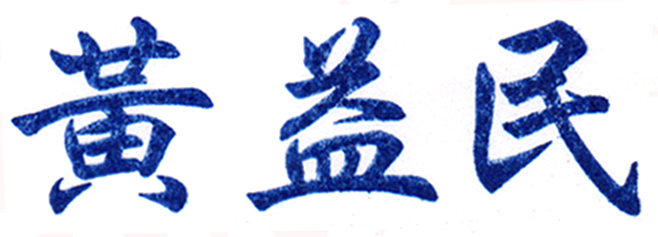 黃益民